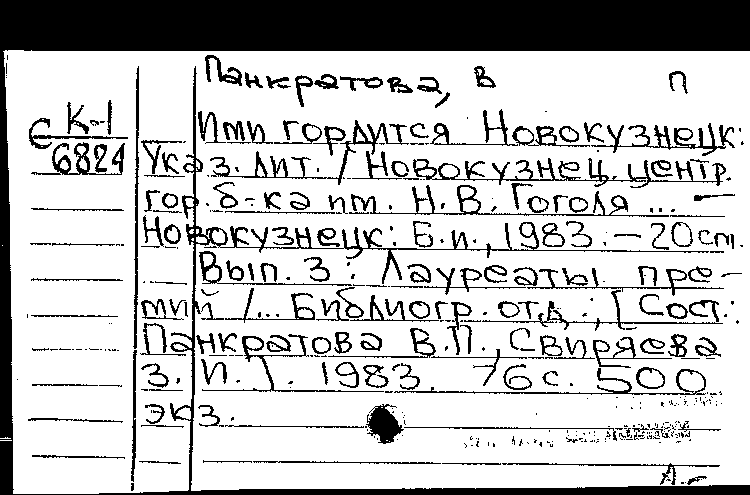 Панкратова, В П
К-1
С
6824
Ими гордится Новокузнецк:
Указ. лит. / Новокузнец. центр.
гор. б-ка им. Н.В. Гоголя ... —
Новокузнецк: Б.и., 1983. — 20 см.
Вып. 3: Лауреаты пре-
мий /... Библиогр. отд.; [Сост.:
Панкратова В.П., Свиряева
З. И.]. 1983. 76 с. 500
экз.